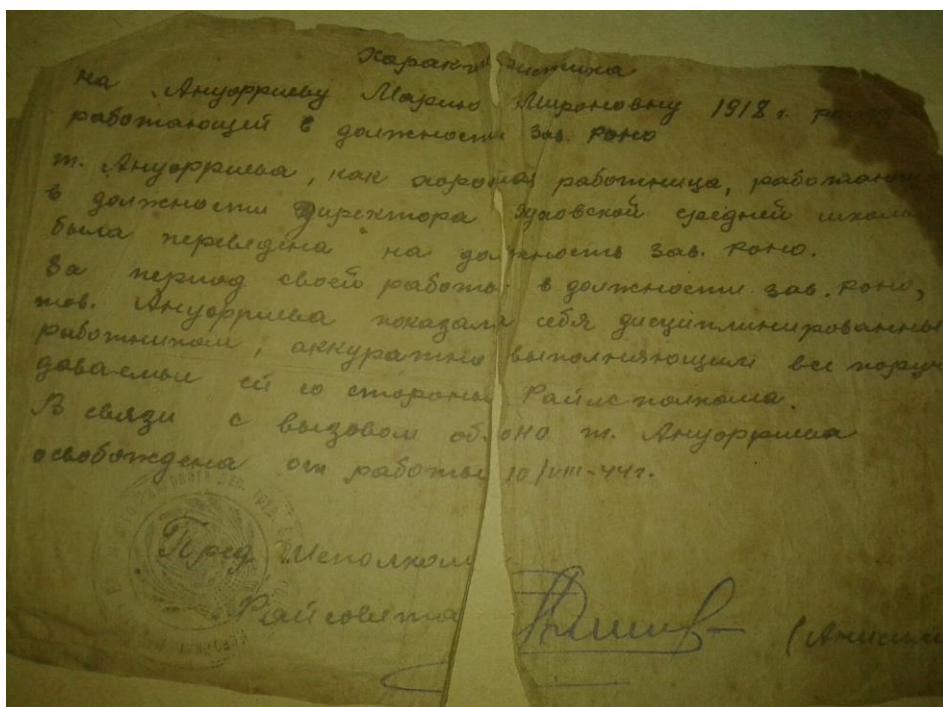 Характеристика
на Ануфриеву Марию Мироновну 1918 г.
работающей в должности Зав. РОНО
т. Ануфриева, как хорошая работница,
в должности Директора средней
была переведена на должность Зав. РОНО.
За период своей работы в должности зав. РОНО,
тов. Ануфриева показала себя
работником, аккуратно выполняющим все
даваемые ей со стороны Райисполкома.
В связи с вызовом облоно т. Ануфриева
освобождена от работы 10/VIII-44г.
Пред. Исполкома
Райсовета